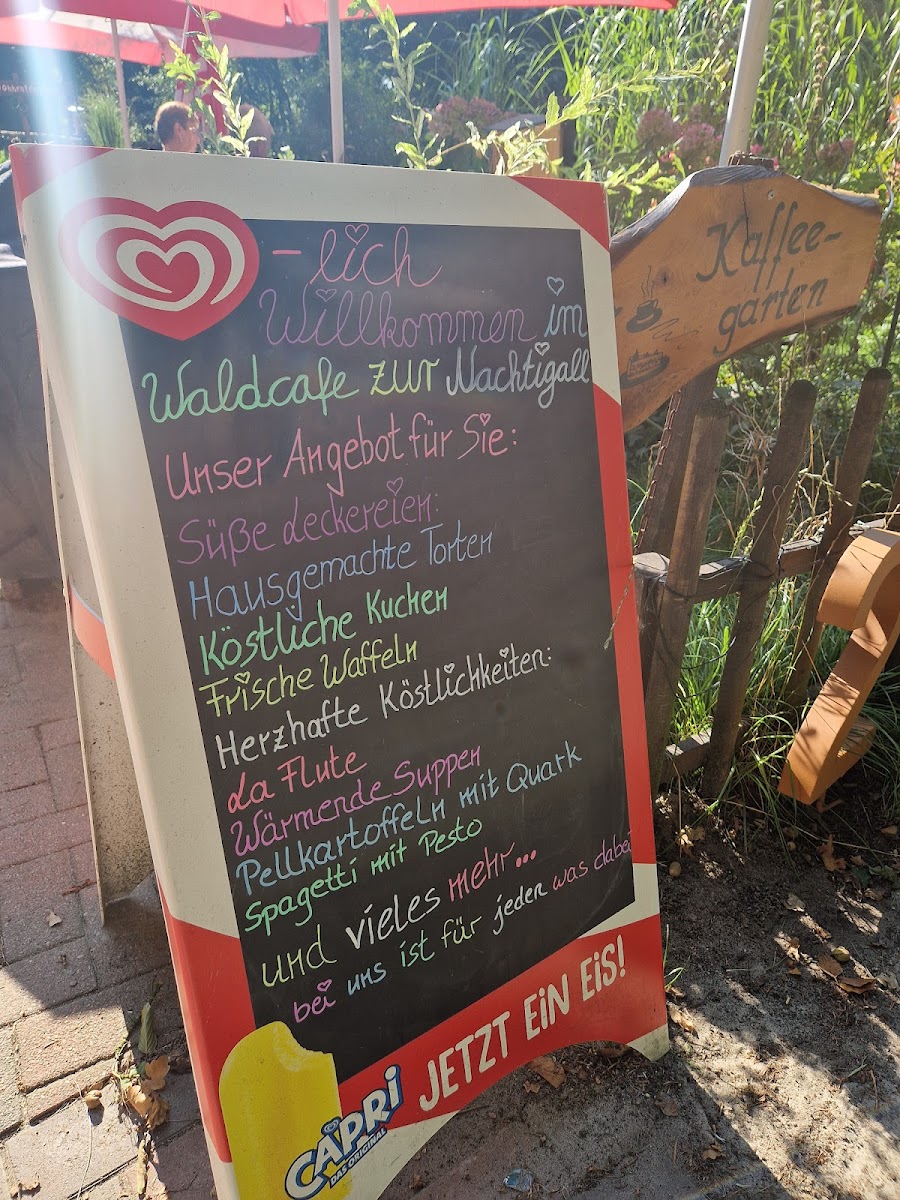 - lich
Willkommen im
Waldcafe zur Nachtigall
Unser Angebot für Sie:
Süße Leckereien:
Hausgemachte Torten
Köstliche Kuchen
Frische Waffeln
Herzhafte Köstlichkeiten:
La Flute
Wärmende Suppen
Pellkartoffeln mit Quark
Spagetti mit Pesto
und vieles mehr...
bei uns ist für jeden was dabei
JETZT EiN EiS!
CAPRI
DAS ORIGINAL
Kaffee-
garten